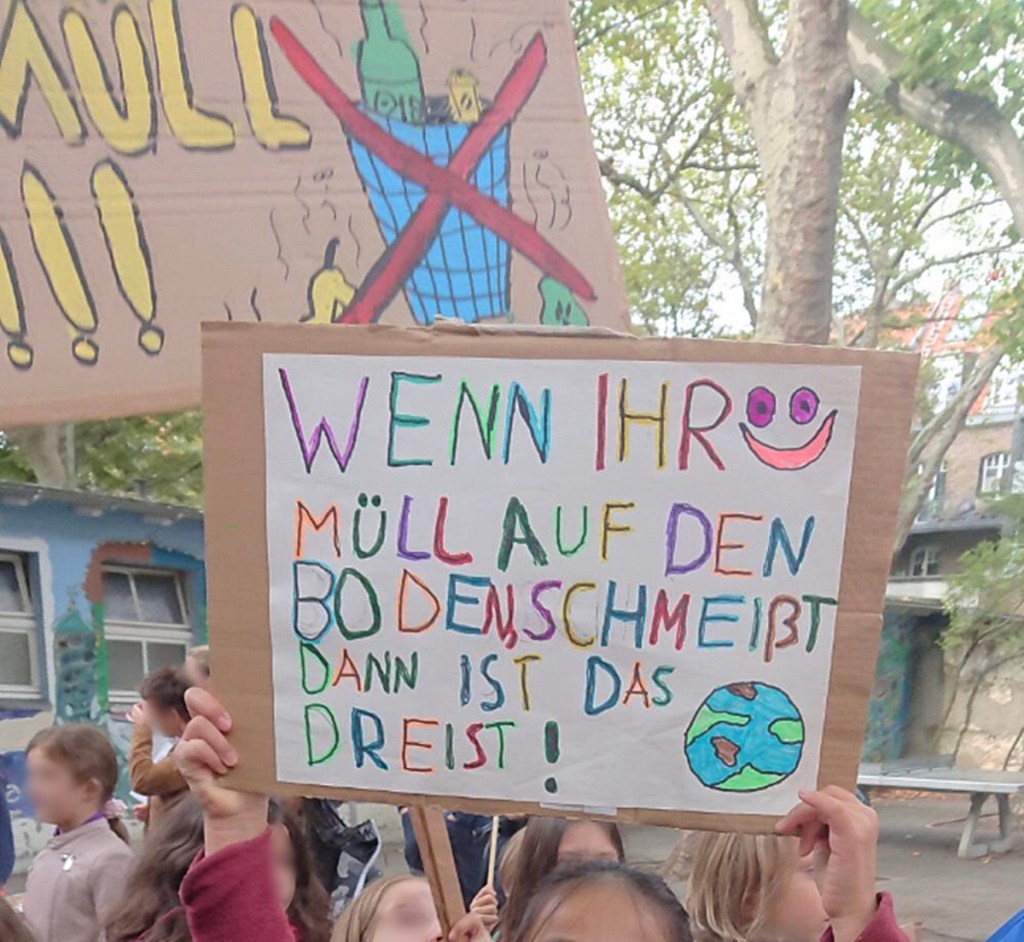 MÜLL
!!!
WENN IHR
MÜLL AUF DEN
BODEN SCHMEIßT
DANN IST DAS
DREIST!